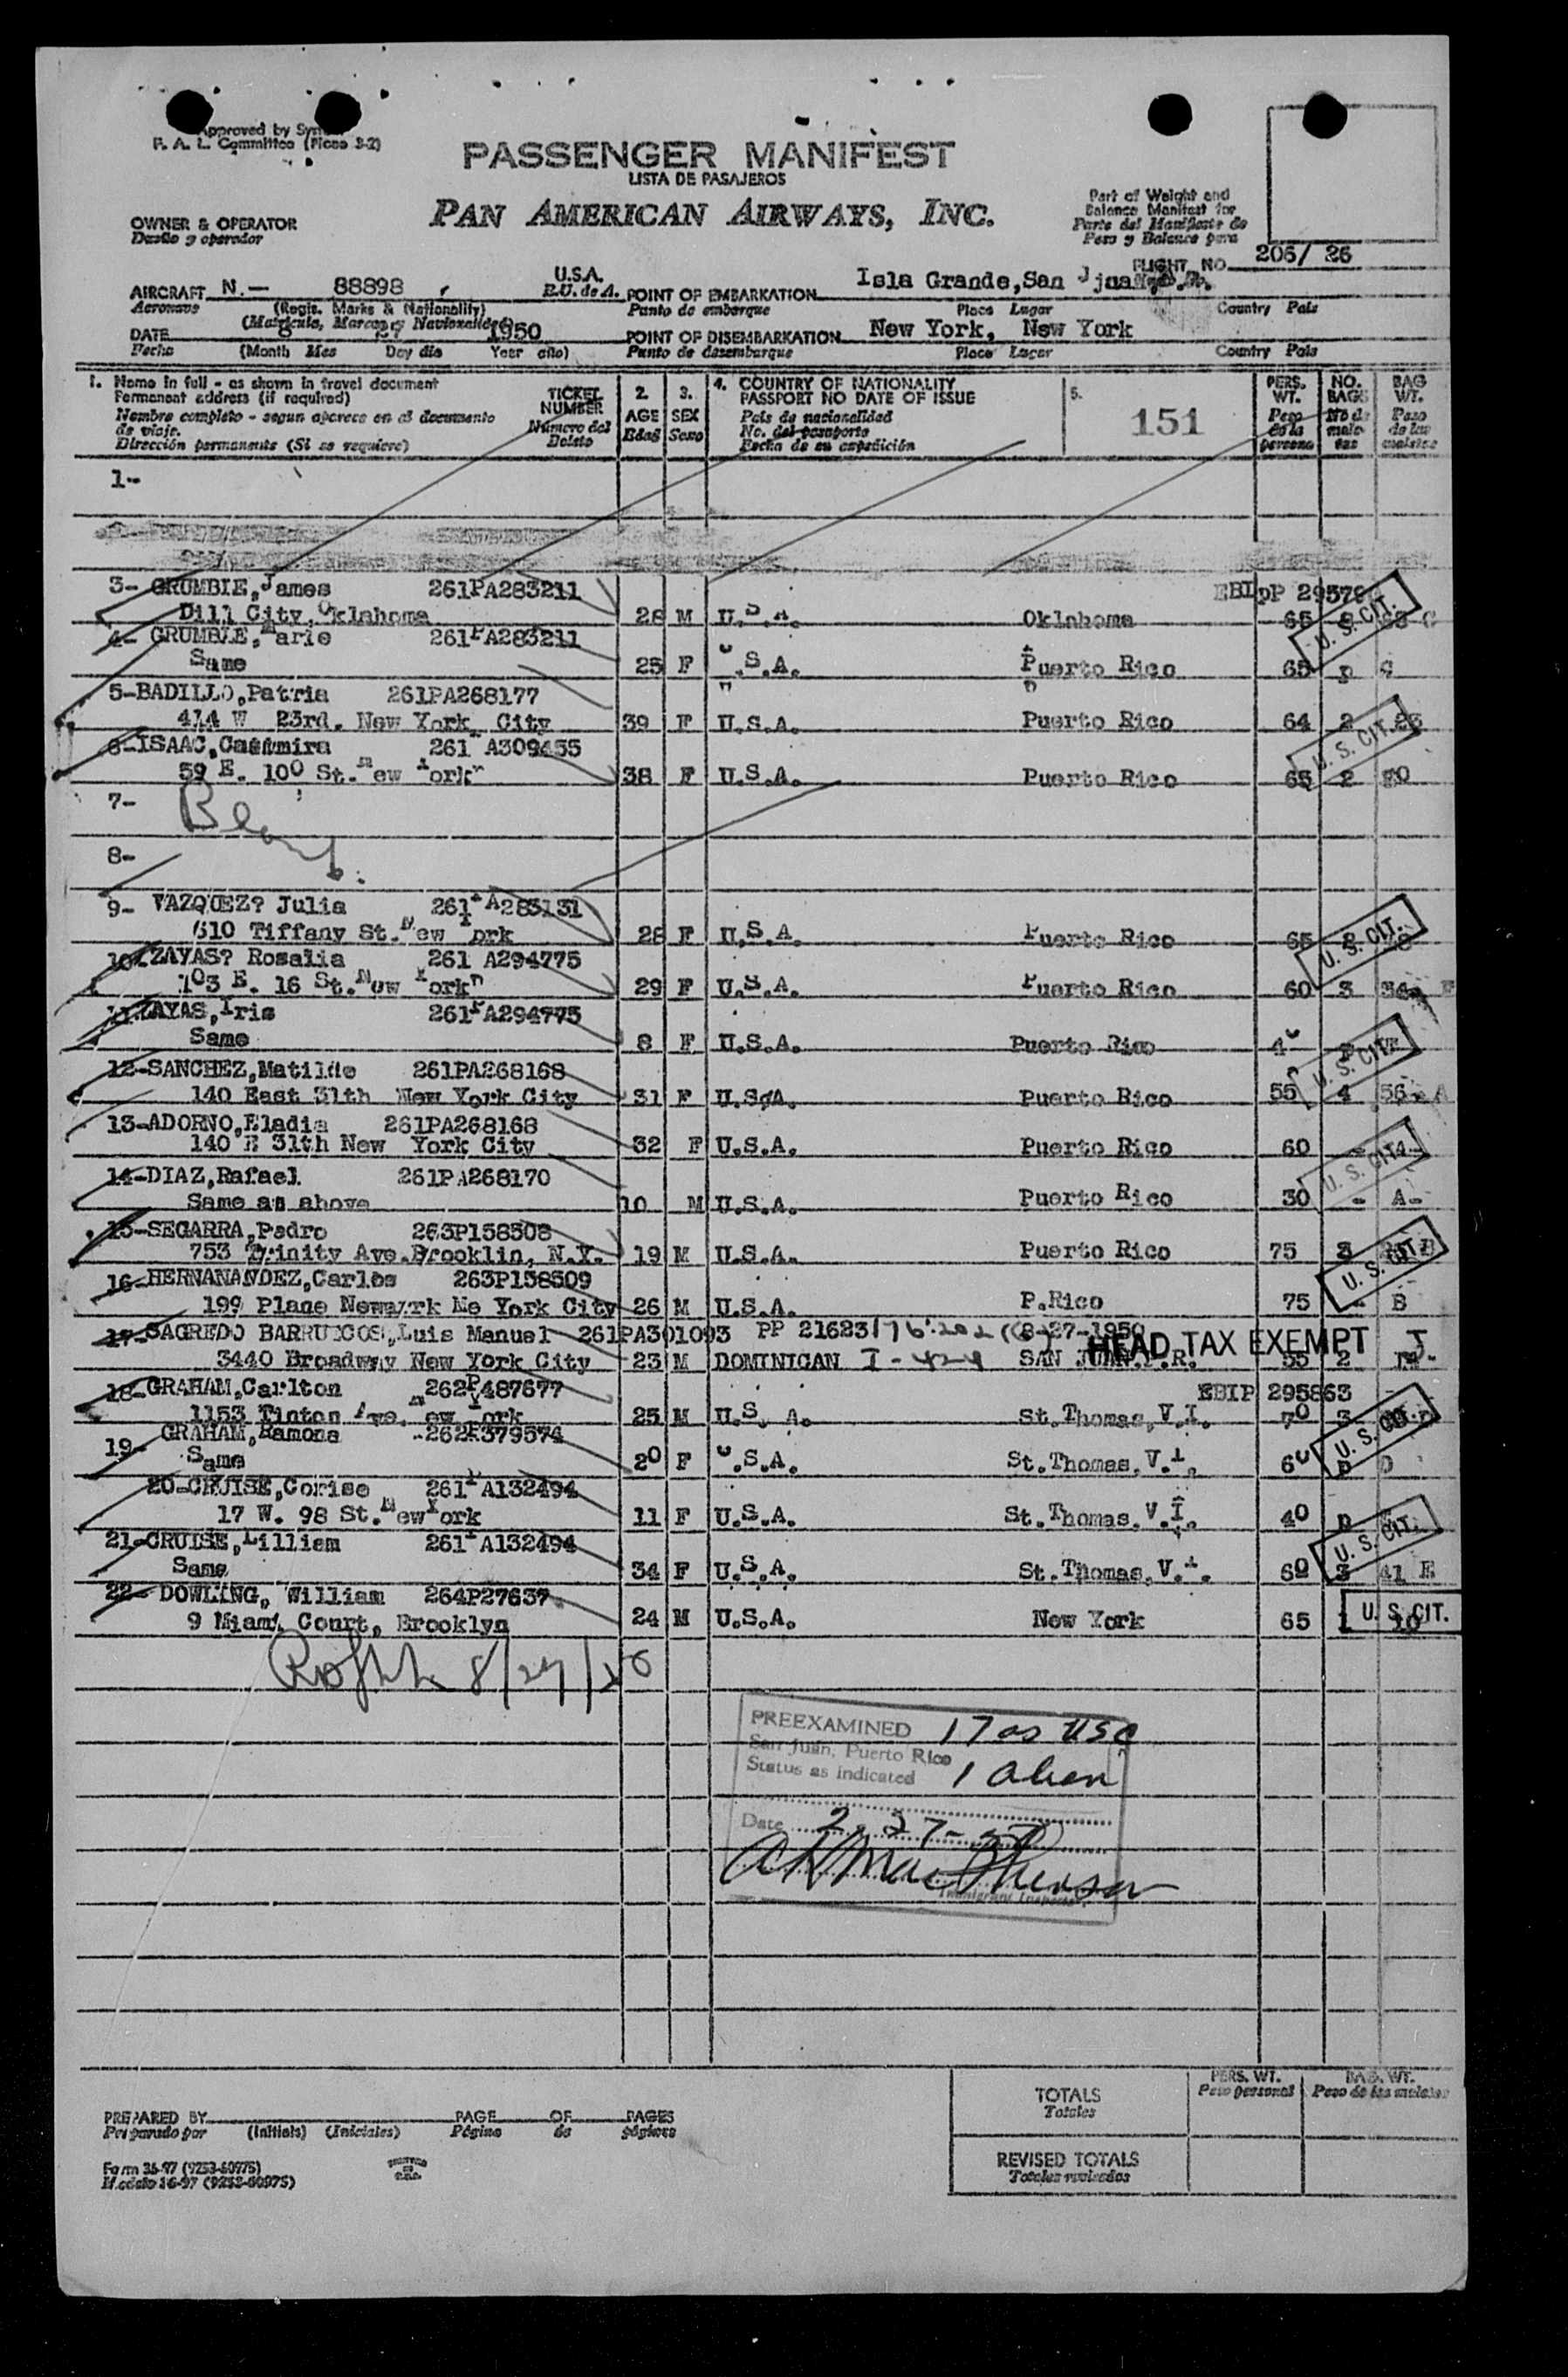 Approved by
F. A. L. Committee (Picao 3-2)
PASSENGER MANIFEST
LISTA DE PASAJEROS
PAN AMERICAN AIRWAYS, INC.
OWNER & OPERATOR
Dueño y operador
Part of Weight and
Balance Manifest for
Parte del Manifiesto de
Peso y Balance para
FLIGHT NO. 206/ 26
AIRCRAFT N.— 88898 U.S.A. E.U. de A.
Aeronave (Regis. Marks & Nationality)
(Matricula, Marcas y Nacionalidad)
POINT OF EMBARKATION Isla Grande,San Jjuan
Punto de embarque Place Lugar Country Pais
DATE 8 27 1950
Fecha (Month Mes Day dia Year año)
POINT OF DISEMBARKATION New York, New York
Punto de desembarque Place Lugar Country Pais
1. Name in full - as shown in travel document
Permanent address (if required)
Nombre completo - segun aparece en el documento
de viaje.
Dirección permanente (Si se requiere)
TICKET NUMBER
Número del Boleto
2. AGE Edad
3. SEX Sexo
4. COUNTRY OF NATIONALITY
PASSPORT NO DATE OF ISSUE
Pais de nacionalidad
No. del pasaporte
Fecha de su expedición
5. 151
PERS. WT. Peso de la persona
NO. BAGS No de male tas
BAG WT. Peso de las maletas
1--
3- GRUMBIE,James 261PA283211 EBIpP
Dill City,Oklahoma 28 M U.S.A. Oklahoma 65
4- GRUMBLE,Marie 261PA283211
Same 25 F U.S.A. Puerto Rico 65 p
5-BADILLO,Patria 261PA268177
414 W 23rd. New York City 39 F U.S.A. Puerto Rico 64 2
6-ISAAC,Casimira 261 A309455
59 E. 100 St.New York 38 F U.S.A. Puerto Rico 65 2
7- Blank
8-
9- VAZQUEZ? Julia 261PA283131
610 Tiffany St.New York 28 F U.S.A. Puerto Rico 65 2
10-ZAYAS? Rosalia 261 A294775
103 E. 16 St.New York 29 F U.S.A. Puerto Rico 60 3
11-ZAYAS,Iris 261PA294775
Same 8 F U.S.A. Puerto Rico
12-SANCHEZ,Matilde 261PA268168
140 East 31th New York City 31 F U.S.A. Puerto Rico 55 4 56 - A
13-ADORNO,Eladia 261PA268168
140 E 31th New York City 32 F U.S.A. Puerto Rico 60
14-DIAZ,Rafael 261PA268170
Same as above 10 M U.S.A. Puerto Rico 30 - A-
15-SEGARRA,Pedro 263P158508
753 Trinity Ave.Brooklin, N.Y. 19 M U.S.A. Puerto Rico 75 3
16-HERNANANDEZ,Carlos 263P158509
199 Plane Newark Ne York City 26 M U.S.A. P.Rico 75 - B
17-SAGREDO BARRUECOS,Luis Manuel 261PA301093 PP 21623 8-27-1950
3440 Broadway New York City 23 M DOMINICAN I-424 SAN JUAN.P.R. 55 2
HEAD TAX EXEMPT
18-GRAHAM,Carlton 262P487677 EBIP 295863
1153 Tinton Ave. New York 25 M U.S. A. St.Thomas,V.I. 70 3
19- GRAHAM,Ramona 262P379574
Same 20 F U.S.A. St.Thomas,V.I. 60 p
20-CRUISE,Corise 261PA132494
17 W. 98 St.New York 11 F U.S.A. St.Thomas,V.I. 40 p
21-CRUISE,Lilliam 261PA132494
Same 34 F U.S.A. St.Thomas,V.I. 60 3 41 E
22- DOWLING, William 264P27637
9 Miami Court, Brooklyn 24 M U.S.A. New York 65 1 10
U. S. CIT.
U. S. CIT.
U. S. CIT.
U. S. CIT.
U. S. CIT.
U. S. CIT.
U. S. CIT.
U. S. CIT.
U. S. CIT.
8/27/50
PREEXAMINED 17 as USC
San Juan, Puerto Rico
Status as indicated 1 alien
Date
Immigrant Inspector
TOTALS
Totales
PERS. WT.
Peso personal
BAG. WT.
Peso de las maletas
REVISED TOTALS
Totales revisados
PREPARED BY PAGE OF PAGES
Preparado por (Initials) (Iniciales) Página de páginas
Form 36-97 (9253-60975)
Modelo 36-97 (9253-60975)